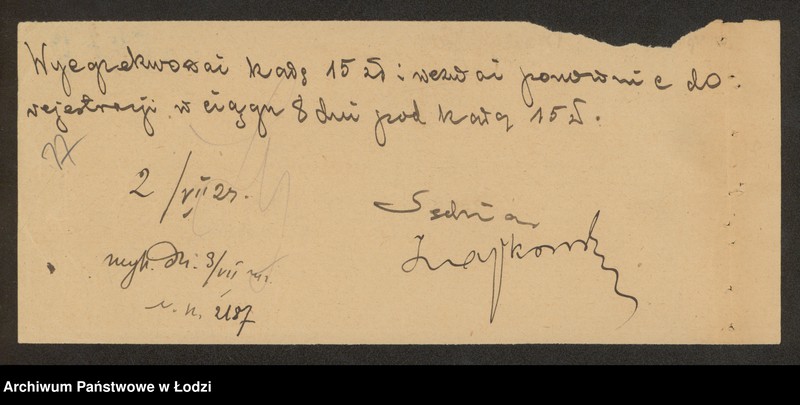 Wyegzekwować karę 15 zł i wezwać ponownie do
rejestracji w ciągu 8 dni pod karą 15 zł.
2/VII 2r.
Sędzia
wyk. dn. 3/VII
n. 2187
Archiwum Państwowe w Łodzi